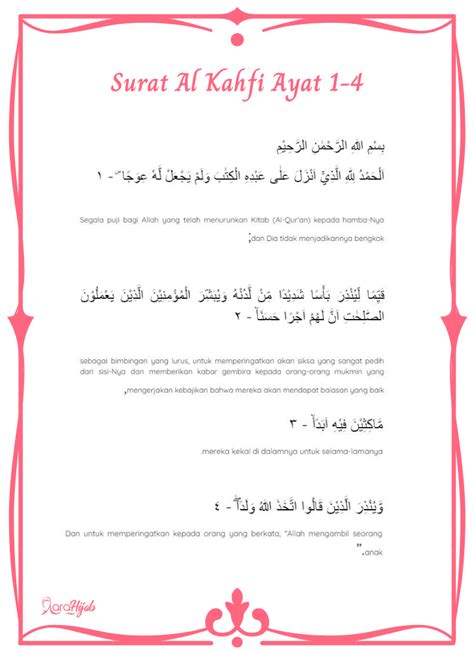 Surat Al Kahfi Ayat 1-4
بِسْمِ اللهِ الرَّحْمٰنِ الرَّحِيْمِ
اَلْحَمْدُ لِلّٰهِ الَّذِيْٓ اَنْزَلَ عَلٰى عَبْدِهِ الْكِتٰبَ وَلَمْ يَجْعَلْ لَّهٗ عِوَجًا ۜ - ١
Segala puji bagi Allah yang telah menurunkan Kitab (Al-Qur'an) kepada hamba-Nya
dan Dia tidak menjadikannya bengkok;
قَيِّمًا لِّيُنْذِرَ بَأْسًا شَدِيْدًا مِّنْ لَّدُنْهُ وَيُبَشِّرَ الْمُؤْمِنِيْنَ الَّذِيْنَ يَعْمَلُوْنَ
الصّٰلِحٰتِ اَنَّ لَهُمْ اَجْرًا حَسَنًاۙ - ٢
sebagai bimbingan yang lurus, untuk memperingatkan akan siksa yang sangat pedih
dari sisi-Nya dan memberikan kabar gembira kepada orang-orang mukmin yang
mengerjakan kebajikan bahwa mereka akan mendapat balasan yang baik,
مَّاكِثِيْنَ فِيْهِ اَبَدًاۙ - ٣
mereka kekal di dalamnya untuk selama-lamanya
وَّيُنْذِرَ الَّذِيْنَ قَالُوا اتَّخَذَ اللّٰهُ وَلَدًاۖ - ٤
Dan untuk memperingatkan kepada orang yang berkata, "Allah mengambil seorang
anak."
RaraHijab